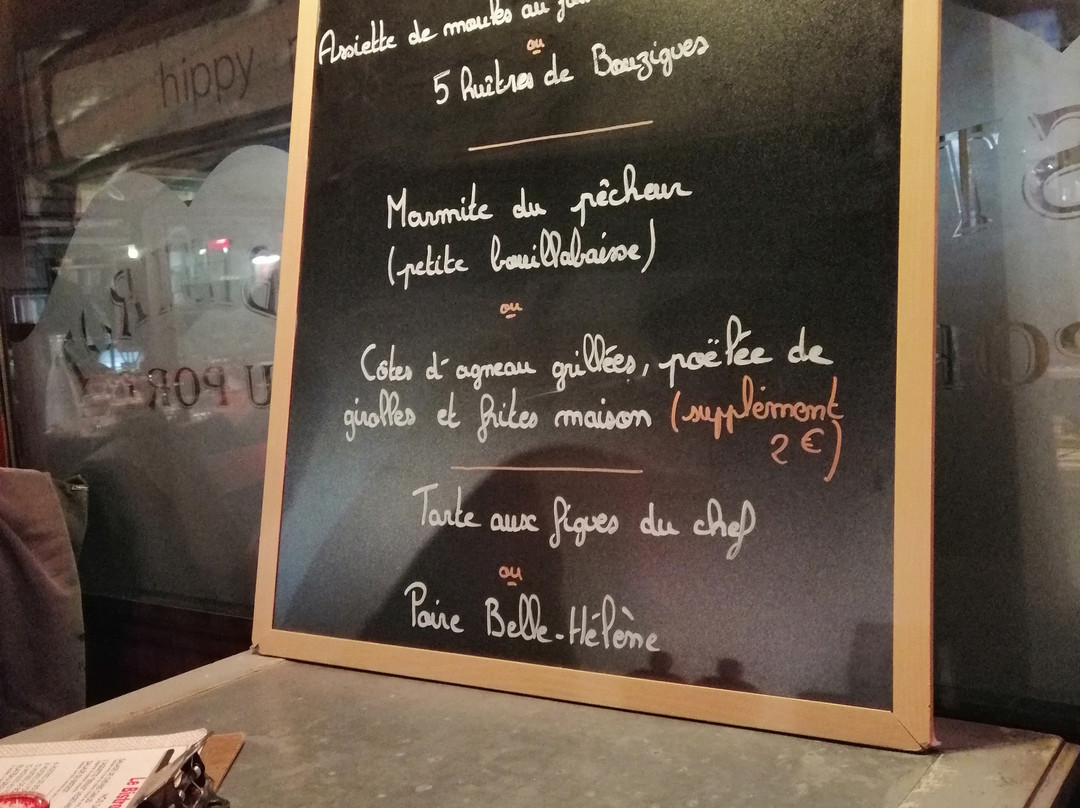 Assiette de moules au
ou
5 huîtres de Bouzigues
Marmite du pêcheur
(petite bouillabaisse)
ou
Côtes d'agneau grillées, poëlée de
girolles et frites maison (supplément
2 €)
Tarte aux figues du chef
ou
Poire Belle-Hélène
hippy
Le Bistro